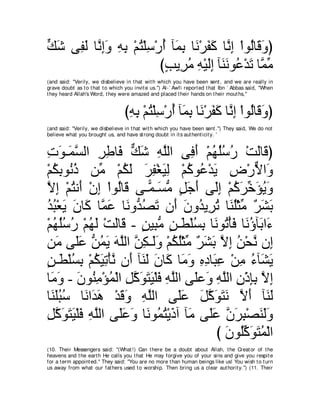 (وَقَالُوۤاْ إِنَّا كَفَرْنَا بِمَآ أُرْسِلْتُمْ بِهِ وَإِنَّا لَفِى شَكٍّ
مِّمَّا تَدْعُونَنَآ إِلَيْهِ مُرِيبٍ)
(and said: "Verily, we disbelieve in that with which you have been sent, and we are really in
grave doubt as to that to which you invite us.'') Al-`Awfi reported that Ibn `Abbas said, "When
they heard Allah's Word, they were amazed and placed their hands on their mouths,''
(وَقَالُوۤاْ إِنَّا كَفَرْنَا بِمَآ أُرْسِلْتُمْ بِهِ)
(and said: "Verily, we disbelieve in that with which you have been sent.'') They said, We do not
believe what you brought us, and have strong doubt in its authenticity. '
(قَالَتْ رُسُلُهُمْ أَفِى اللَّهِ شَكٌّ فَاطِرِ السَّمَـوَتِ
وَالاٌّرْضِ يَدْعُوكُمْ لِيَغْفِرَ لَكُمْ مِّن ذُنُوبِكُمْ
وَيُؤَخِّرَكُمْ إِلَى أَجَلٍ مُّسَمًّـى قَالُواْ إِنْ أَنتُمْ إِلاَّ
بَشَرٌ مِّثْلُنَا تُرِيدُونَ أَن تَصُدُّونَا عَمَّا كَانَ يَعْبُدُ
ءَابَآؤُنَا فَأْتُونَا بِسُلْطَـنٍ مُّبِينٍ - قَالَتْ لَهُمْ رُسُلُهُمْ
إِن نَّحْنُ إِلاَّ بَشَرٌ مِّثْلُكُمْ وَلَـكِنَّ اللَّهَ يَمُنُّ عَلَى مَن
يَشَآءُ مِنْ عِبَادِهِ وَمَا كَانَ لَنَآ أَن نَّأْتِيَكُمْ بِسُلْطَـنٍ
إِلاَّ بِإِذْنِ اللَّهِ وَعلَى اللَّهِ فَلْيَتَوَكَّلِ الْمُؤْمِنُونَ - وَمَا
لَنَآ أَلاَّ نَتَوَكَّلَ عَلَى اللَّهِ وَقَدْ هَدَانَا سُبُلَنَا
وَلَنَصْبِرَنَّ عَلَى مَآ آذَيْتُمُونَا وَعَلَى اللَّهِ فَلْيَتَوَكَّلِ
الْمُتَوَكِّلُونَ )
(10. Their Messengers said: "(What!) Can there be a doubt about Allah, the Creator of the
heavens and the earth He calls you that He may forgive you of your sins and give you respite
for a term appointed.'' They said: "You are no more than human beings like us! You wish to turn
us away from what our fathers used to worship. Then bring us a clear authority.'') (11. Their